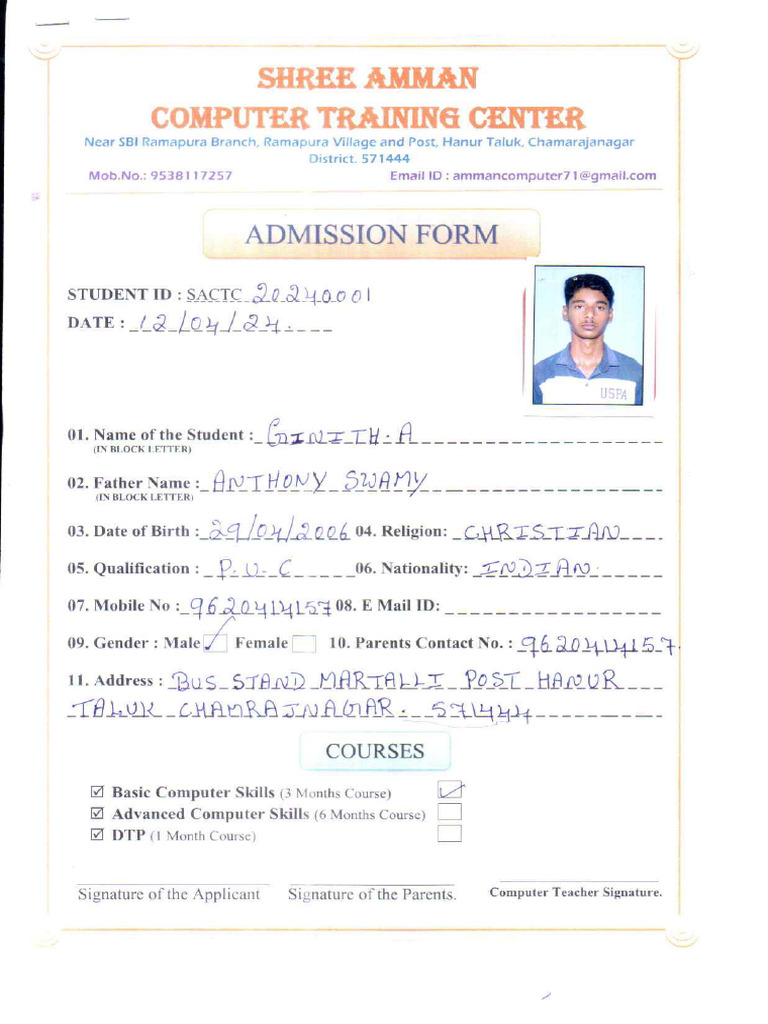 SHREE AMMAN
COMPUTER TRAINING CENTER
Near SBI Ramapura Branch, Ramapura Village and Post, Hanur Taluk, Chamarajanagar
District. 571444
Mob.No.: 9538117257 Email ID : ammancomputer71@gmail.com
ADMISSION FORM
STUDENT ID : SACTC 20240001
DATE : 12/04/24
USPA
01. Name of the Student : GINITH.A
(IN BLOCK LETTER)
02. Father Name : ANTHONY SWAMY
(IN BLOCK LETTER)
03. Date of Birth : 29/04/2006 04. Religion: CHRISTIAN
05. Qualification : P.U.C 06. Nationality: INDIAN
07. Mobile No : 9620414157 08. E Mail ID:
09. Gender : Male Female 10. Parents Contact No. : 9620414157.
11. Address : BUS STAND MARTALLI POST HANUR
TALUK CHAMRAJNAGAR. 571444
COURSES
Basic Computer Skills (3 Months Course)
Advanced Computer Skills (6 Months Course)
DTP (1 Month Course)
Signature of the Applicant Signature of the Parents. Computer Teacher Signature.